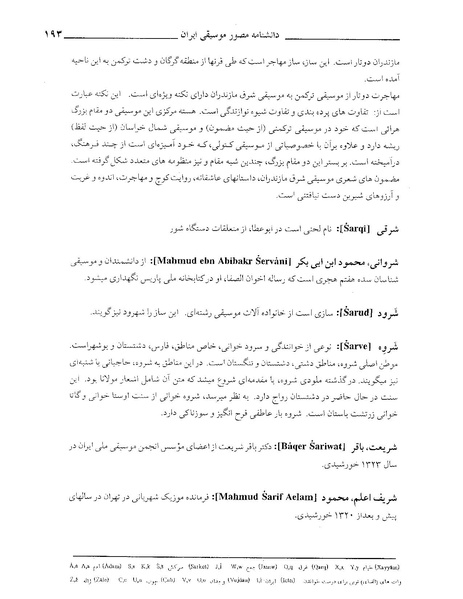 دانشنامه مصور موسیقی ایران ۱۹۳
مازندران دوتار است. این ساز، ساز مهاجر است که طی قرنها از منطقه گرگان و دشت ترکمن به این ناحیه
آمده است.
مهاجرت دوتار از موسیقی ترکمن به موسیقی شرق مازندران دارای نکته ویژه‌ای است. این نکته عبارت
است از: تفاوت های پرده بندی و تفاوت شیوه نوازندگی است. هسته مرکزی این موسیقی دو مقام بزرگ
هرائی است که خود در موسیقی ترکمنی (از حیث مضمون) و موسیقی شمال خراسان (از حیث لفظ)
ریشه دارد و علاوه برآن با خصوصیاتی از موسیقی کتولی، که خود آمیزه‌ای است از چند فرهنگ،
درآمیخته است. بر بستر این دو مقام بزرگ، چندین شبه مقام و نیز منظومه های متعدد شکل گرفته است.
مضمون های شعری موسیقی شرق مازندران، داستانهای عاشقانه، روایت کوچ و مهاجرت، اندوه و غربت
و آرزوهای شیرین دست نیافتنی است.
شرقی [Šarqi]: نام لحنی است در ابوعطا، از متعلقات دستگاه شور
شروانی، محمود ابن ابی بکر [Mahmud ebn Abibakr Šervâni]: از دانشمندان و موسیقی
شناسان سده هفتم هجری است که رساله اخوان الصفاء او در کتابخانه ملی پاریس نگهداری میشود.
شرود [Šarud]: سازی است از خانواده آلات موسیقی رشته‌ای. این ساز را شهرود نیز گویند.
شروه [Šarve]: نوعی از خوانندگی و سرود خوانی، خاص مناطق، فارس، دشتستان و بوشهر است.
موطن اصلی شروه، مناطق دشتی، دشتستان و تنگستان است. در این مناطق به شروه، حاجیانی یا شنبه‌ای
نیز میگویند. در گذشته ملودی شروه، با مقدمه‌ای شروع میشد که متن آن شامل اشعار مولانا بود. این
سنت در حال حاضر در دشتستان رواج دارد. به نظر میرسد، شروه خوانی از سنت اوستا خوانی و گاتا
خوانی زرتشت باستان است. شروه بار عاطفی فرح انگیز و سوزناکی دارد.
شریعت، باقر [Bâqer Šariwat]: دکتر باقر شریعت از اعضای مؤسس انجمن موسیقی ملی ایران در
سال ۱۳۲۳ خورشیدی.
شریف اعلم، محمود [Mahmud Šarif Aelam]: فرمانده موزیک شهربانی در تهران در سالهای
پیش و بعد از ۱۳۲۰ خورشیدی.